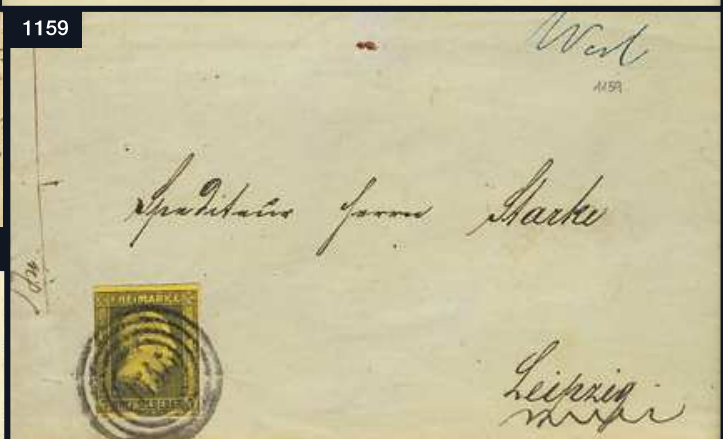 1159
Werl
1159
Spediteur Herrn Starke
FREIMARKE
SILBERGR
Leipzig